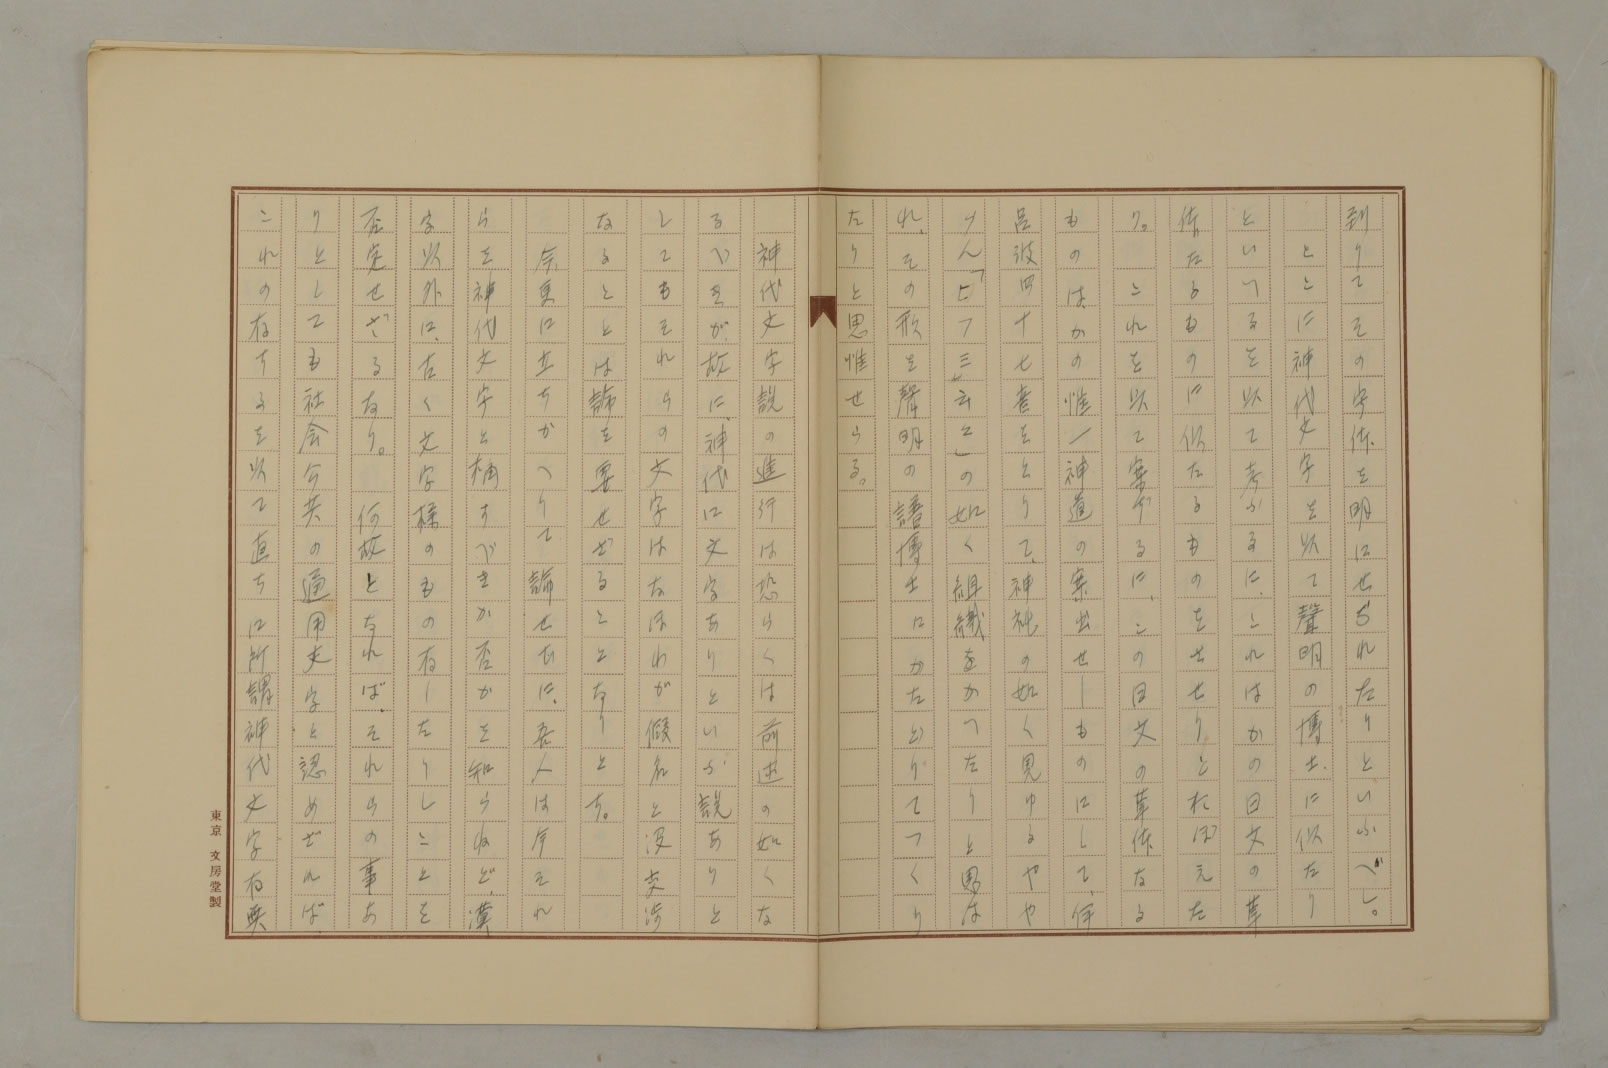 到りてその字体を明にせられたりといふべし。
こゝに神代文字を以て聲明の博士に似たり
といへるを以て考ふるに、これはかの日文の草
体たるものに似たるものをさせりとおぼえた
り。これを以て案ずるに、この日文の草体なる
ものはかの惟一神道の案出せしものにして、伊
呂波四十七音をとりて、神祕の如く見ゆるやや
けん「ヒフミ云云」の如く組織をかへたりと思は
れ、その形を聲明の譜博士にかたどりてつくり
たりと思惟せらる。
神代文字説の進行は恐らくは前述の如くな
るべきが故に、神代に文字ありといふ説ありと
してもそれらの文字はなほわが假名と没交渉
なることは論を要せざることなりとす。
今更に立ちかへりて論せむに、吾人は今それ
らを神代文字と稱すべきか否かを知らねど、漢
字以外に、古く文字様のものの存したりしことを
否定せざるなり。何故となれば、それらの事あ
りとしても社会公共の通用文字と認めざれば、
これの存するを以て直ちに所謂神代文字存興
東京 文房堂製